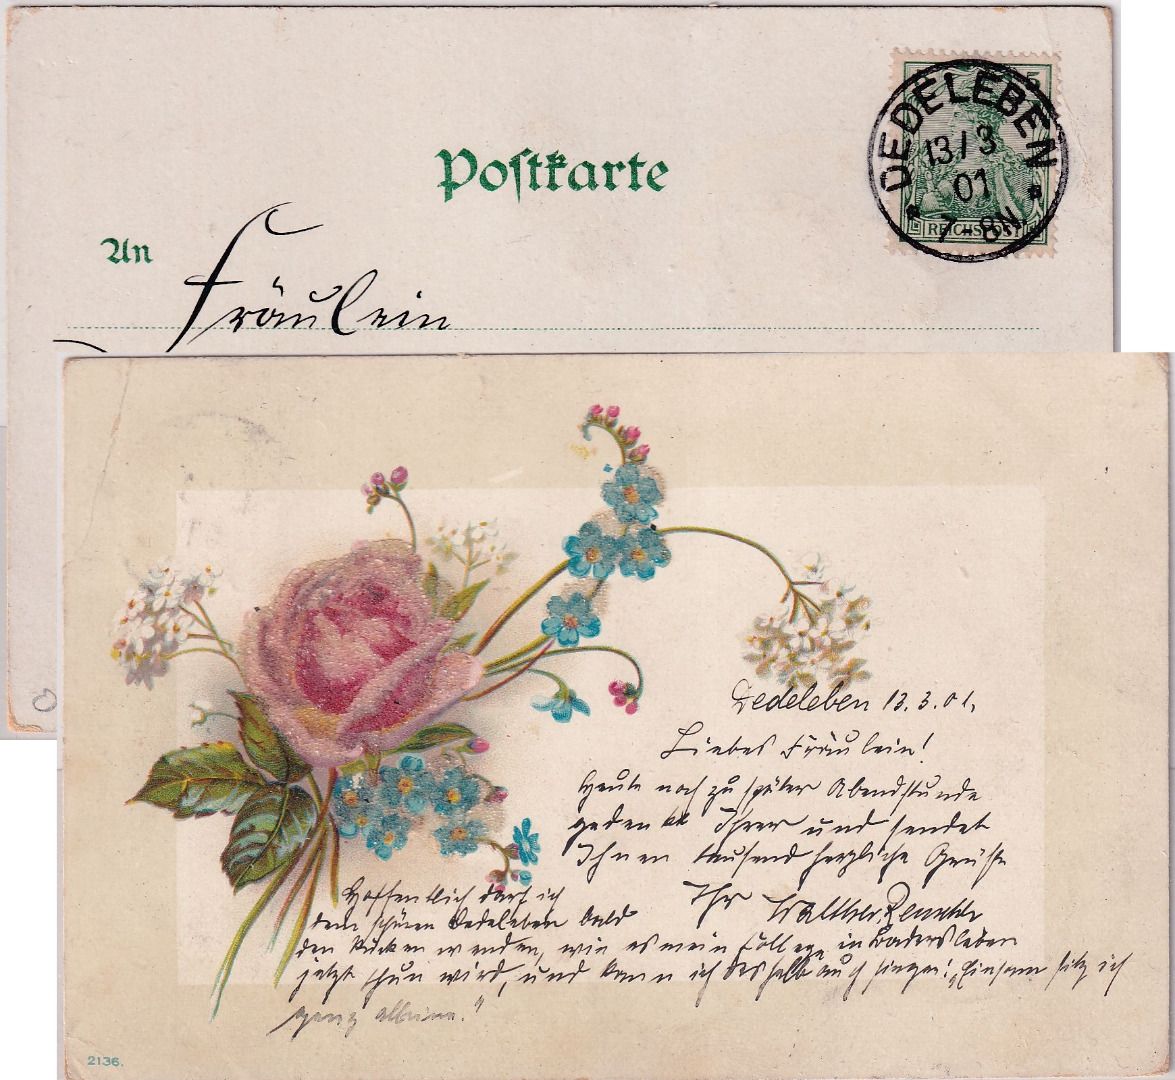 Postkarte
An
Fräulein
5
DEDELEBEN
13/3
01
7-8N
REICHSPOST
Dedeleben 13.3.01.
Liebes Fräulein!
Heute noch zu später Abendstunde
gedenkt Ihrer und sendet
Ihnen tausend herzliche Grüße
Ihr Walther
Hoffentlich darf ich
dem schönen Dedeleben bald
den Rücken wenden, wie es mein College in Badersleben
jetzt thun wird, und kann ich deshalb auch singen: „Einsam sitz ich
ganz alleine."
2136.